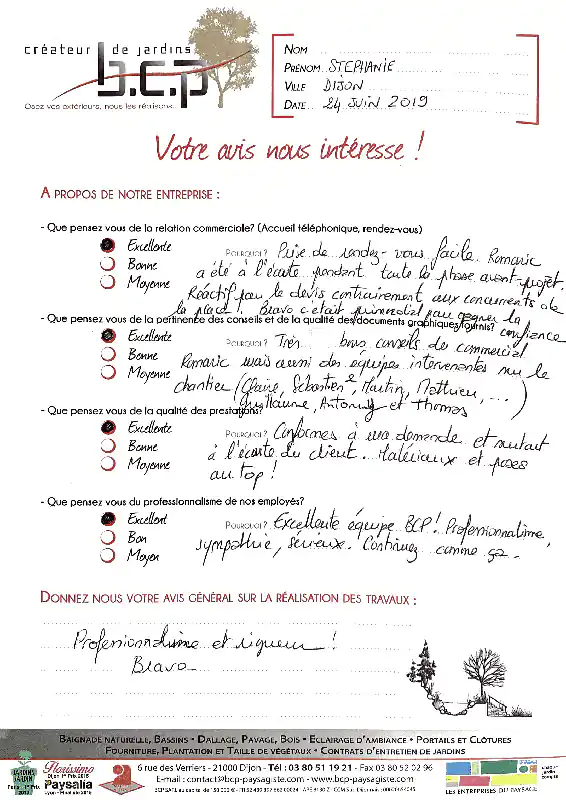 créateur de jardins
b.c.p
Osez vos extérieurs, nous les réalisons...
NOM
PRÉNOM STEPHANIE
VILLE DIJON
DATE 24 JUIN 2019
Votre avis nous intéresse !
A PROPOS DE NOTRE ENTREPRISE :
- Que pensez vous de la relation commerciale? (Accueil téléphonique, rendez-vous)
Excellente
Bonne
Moyenne
POURQUOI ? Prise de rendez-vous facile. Romaric
a été à l'écoute pendant toute la phase avant-projet.
Réactif pour le devis contrairement aux concurrents de
la place ! Bravo c'était primordial pour gagner la
confiance
- Que pensez vous de la pertinence des conseils et de la qualité des documents graphiques fournis?
Excellente
Bonne
Moyenne
POURQUOI ? Très bons conseils du commercial
Romaric mais aussi des équipes intervenantes sur le
chantier (Claire, Sébastien², Martin, Mathieu, ...)
Guillaume, Antony et Thomas
- Que pensez vous de la qualité des prestations?
Excellente
Bonne
Moyenne
POURQUOI ? Conformes à ma demande et surtout
à l'écoute du client. Matériaux et poses
au top !
- Que pensez vous du professionnalisme de nos employés?
Excellent
Bon
Moyen
POURQUOI ? Excellente équipe BCP ! Professionnalisme,
sympathie, sérieux. Continuez comme ça.
DONNEZ NOUS VOTRE AVIS GÉNÉRAL SUR LA RÉALISATION DES TRAVAUX :
Professionnalisme et rigueur !
Bravo
BAIGNADE NATURELLE, BASSINS • DALLAGE, PAVAGE, BOIS • ECLAIRAGE D'AMBIANCE • PORTAILS ET CLÔTURES
FOURNITURE, PLANTATION ET TAILLE DE VÉGÉTAUX • CONTRATS D'ENTRETIEN DE JARDINS
6 rue des Verriers - 21000 Dijon - Tél : 03 80 51 19 21 - Fax 03 80 52 02 96
E-mail : contact@bcp-paysagiste.com - www.bcp-paysagiste.com
JARDINS JARDIN
Florissimo
Paysalia
LES ENTREPRISES DU PAYSAGE